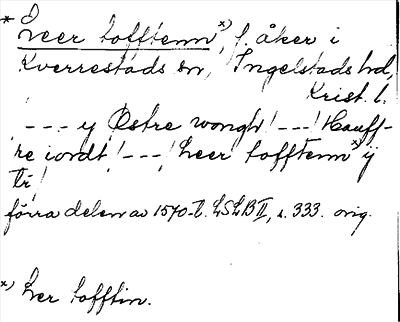 * Leer tofftenn *), f. åker i
Kverrestads sn, Ingelstads hd,
Krist. l.
--- y Østre wongh! ---! Hauff-
re iordt! ---! Leer tofftenn *) ij
tr!
förra delen av 1570-t. LSLB II, s. 333. orig.
*) Ler tofftin.